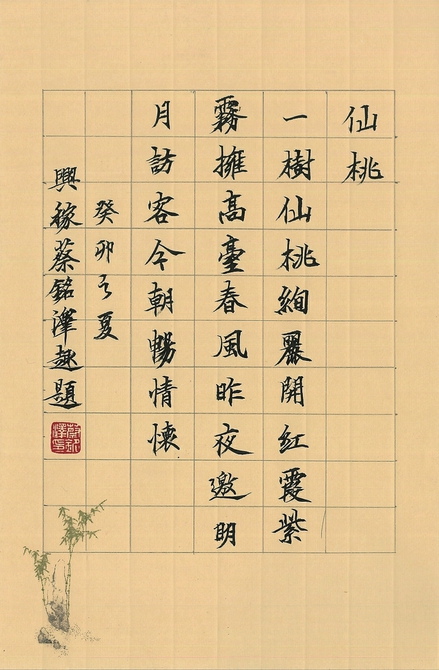 仙桃
一樹仙桃絢麗開紅霞紫
霧擁高臺春風昨夜邀明
月訪客今朝暢情懷
癸卯之夏
興稼蔡銘澤趣題